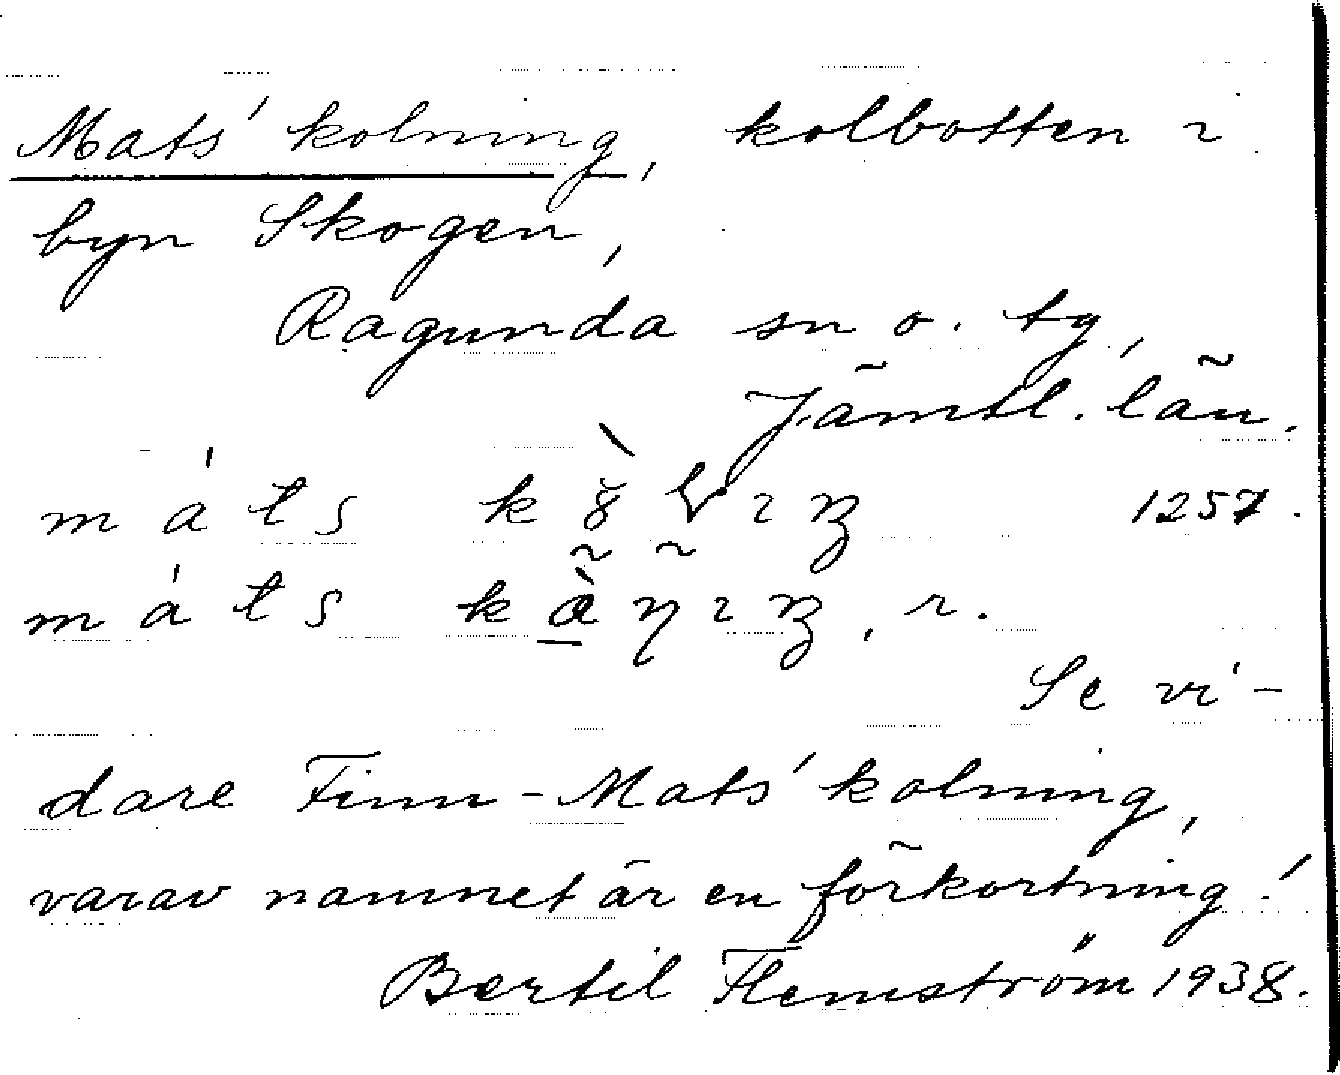 Mats' kolning, kolbotten i
byn Skogen,
Ragunda sn o. tg,
Jämtl. län.
1257.
r.
Se vi-
dare Finn-Mats' kolning,
varav namnet är en förkortning!
Bertil Flemström 1938.